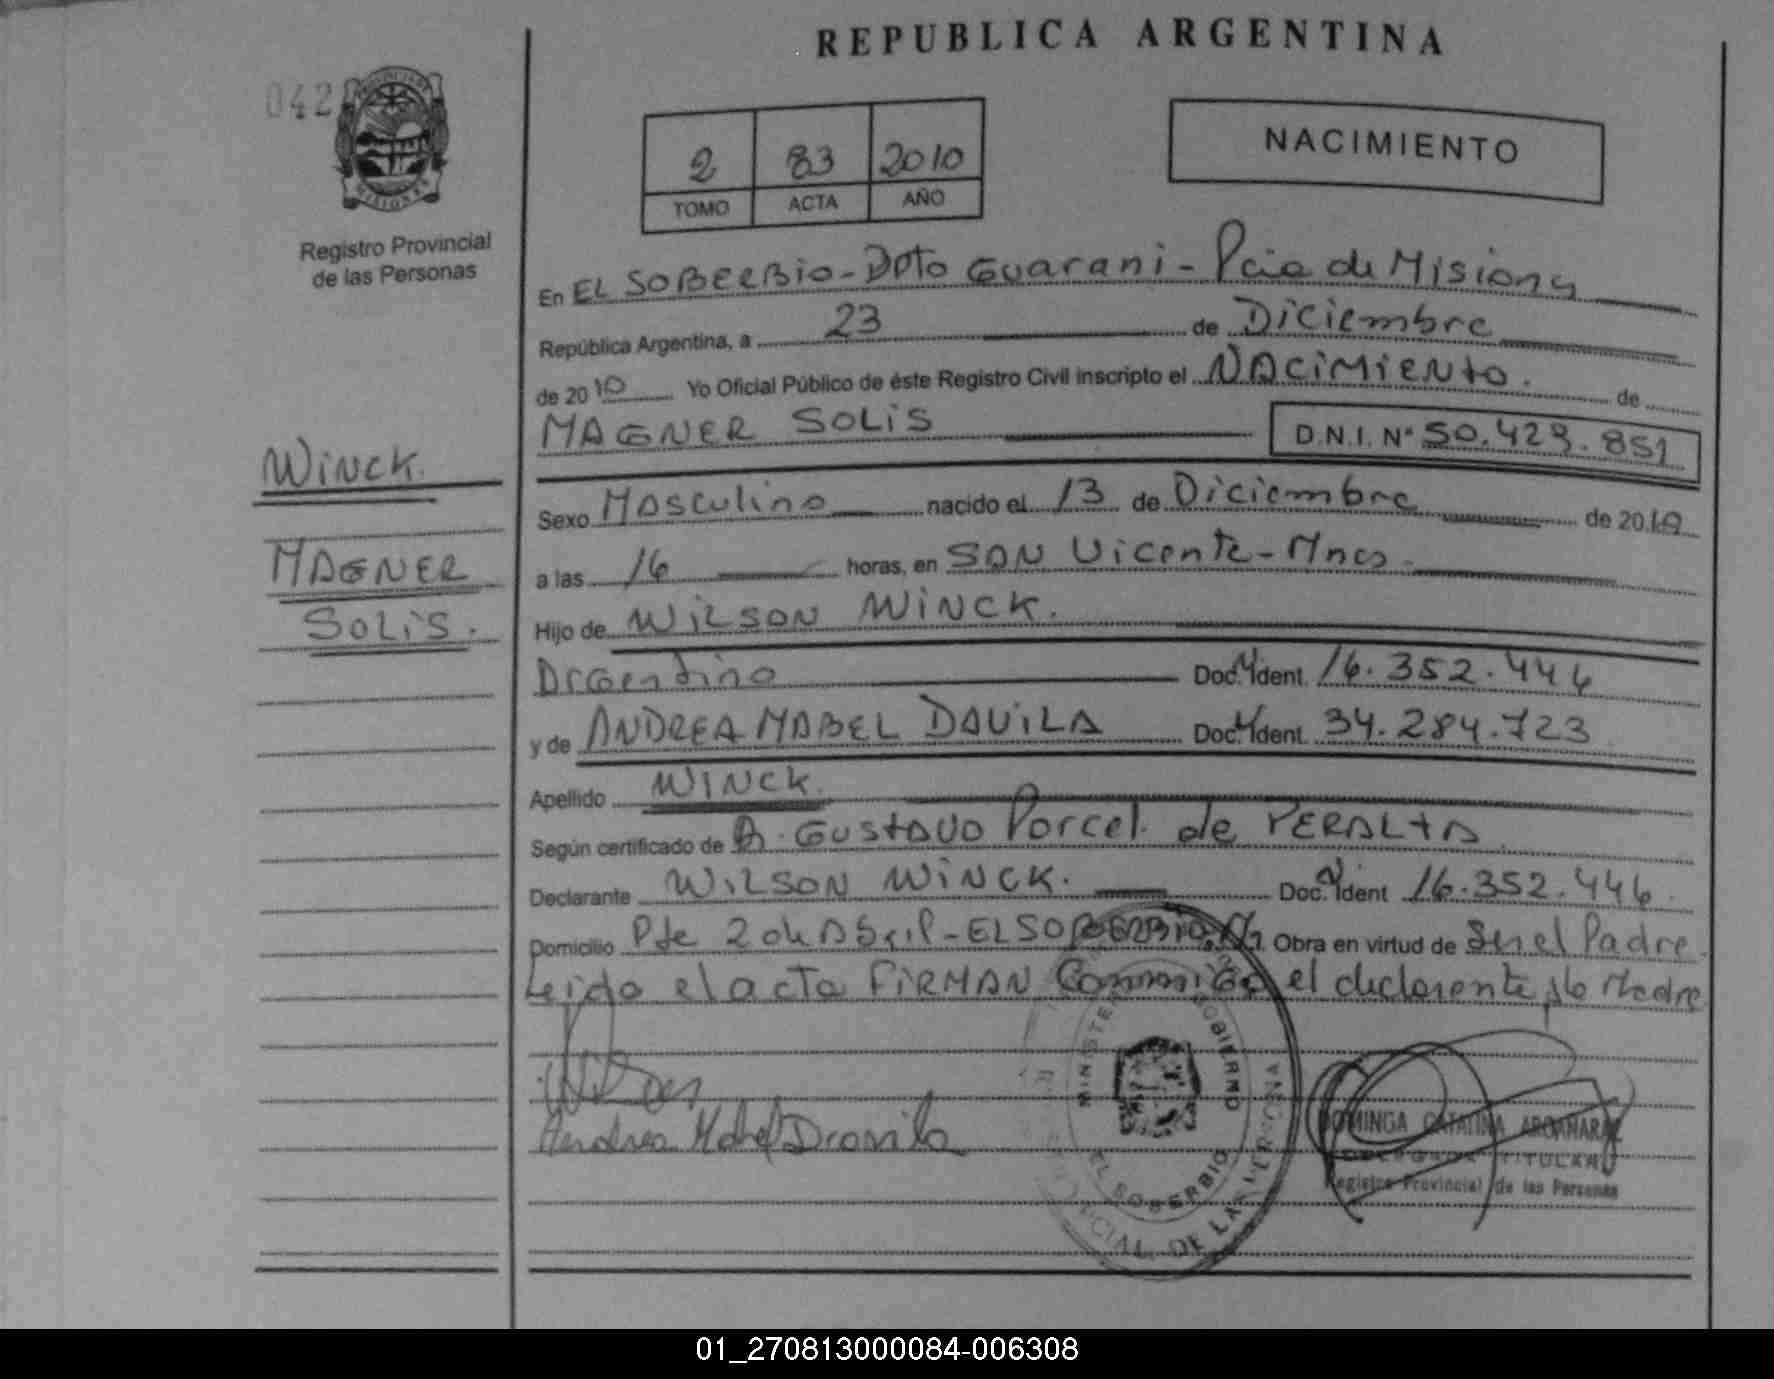 REPUBLICA ARGENTINA
042
PROVINCIA DE MISIONES
Registro Provincial
de las Personas
2 83 2010
TOMO ACTA AÑO
NACIMIENTO
En EL SOBERBIO - Dpto Guarani - Pcia de Misiones
República Argentina, a 23 de Diciembre
de 2010 Yo Oficial Público de éste Registro Civil inscripto el NACIMIENTO. de
MAGNER SOLIS D.N.I. Nº 50.429.851
WINCK.
MAGNER
SOLIS.
Sexo Masculino nacido el 13 de Diciembre de 2010
a las 16 horas, en SAN Vicente - Mnes.
Hijo de WILSON WINCK.
Argentino Doc. Ident. 16.352.446
y de ANDREA MABEL DAVILA Doc. Ident. 34.284.723
Apellido WINCK.
Según certificado de GUSTAVO Porcel de PERALTA
Declarante WILSON WINCK. Doc. Ident 16.352.446.
Domicilio Pje 2 de Abril - EL SOBERBIO Obra en virtud de Ser el Padre.
Leida el acta FIRMAN Conmigo el declarante y la Madre
MINISTERIO GOBIERNO
EL SOBERBIO
Andrea Mabel Davila
DOMINGA CATALINA ARGAÑARAZ
DELEGADA TITULAR
Registro Provincial de las Personas
01_270813000084-006308